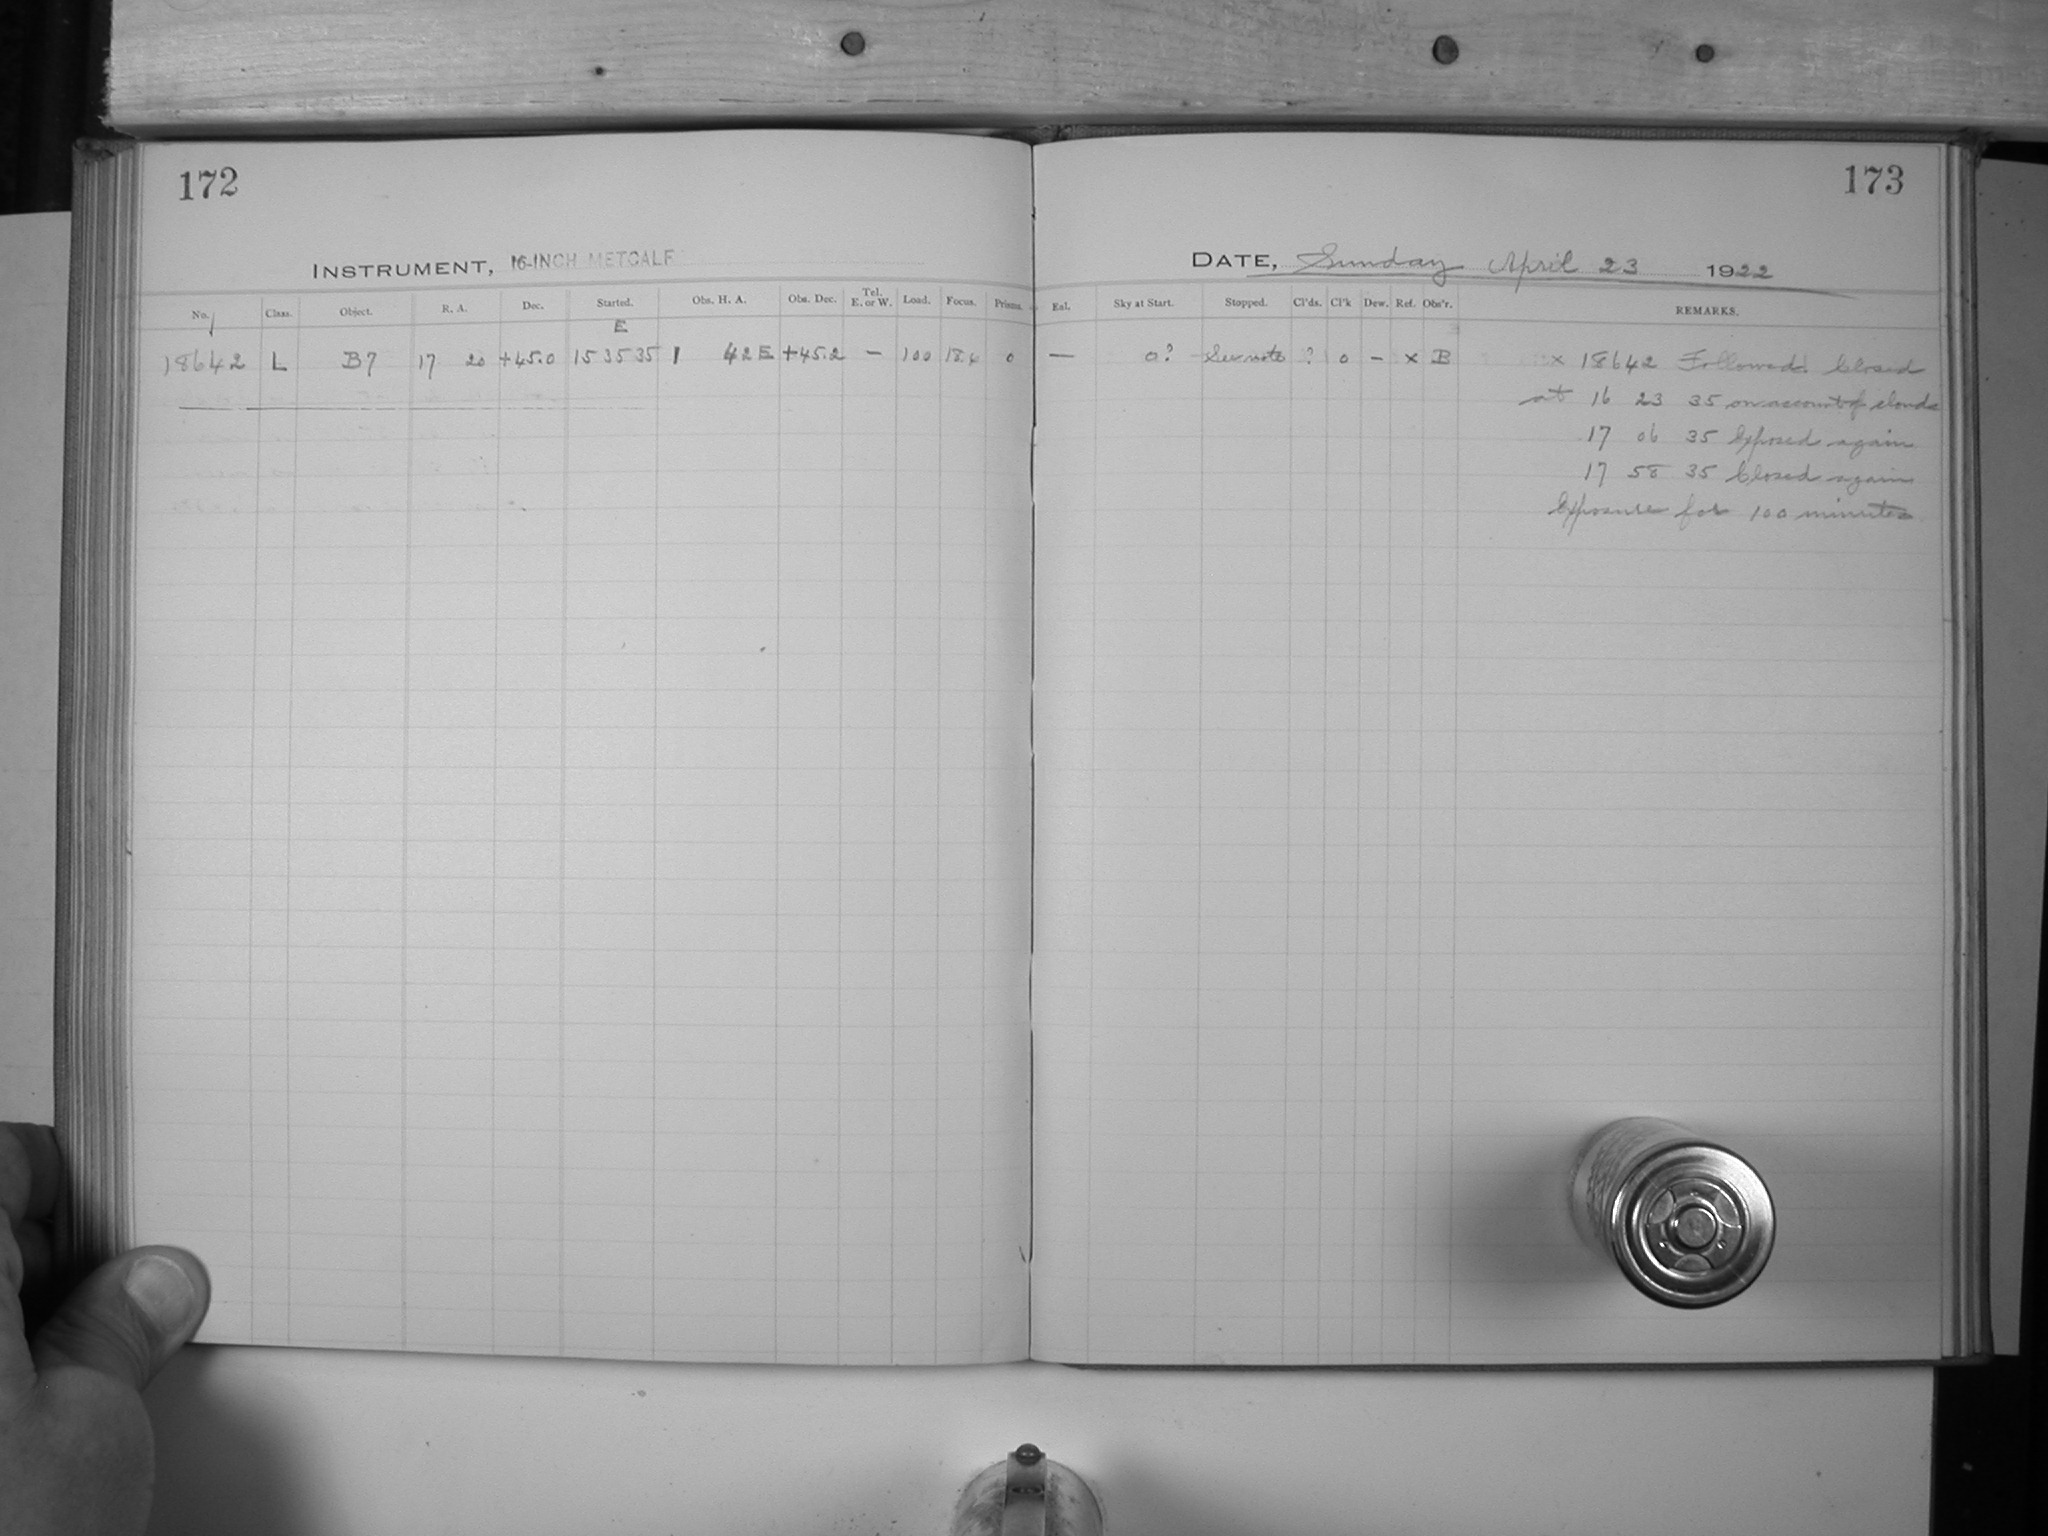 172
INSTRUMENT, 16-INCH METCALF
No. Class. Object. R. A. Dec. Started. Obs. H. A. Obs. Dec. Tel. E. or W. Load. Focus. Prisms.
E
18642 L B7 17 20 +45.0 15 35 35 1 42 E +45.2 — 100 18.6 0
173
DATE, Sunday April 23 1922
Eal. Sky at Start. Stopped. Cl'ds. Cl'k Dew. Ref. Obs'r. REMARKS.
— 0? See note ? 0 – x B x 18642 Followed. Closed
at 16 23 35 on account of clouds
17 06 35 Exposed again
17 58 35 Closed again
Exposure for 100 minutes